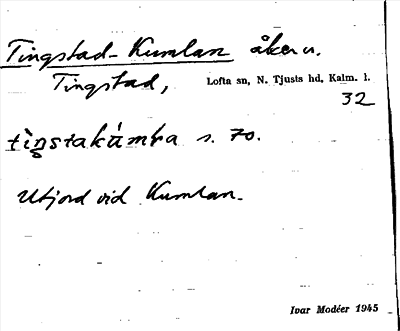 Tingstad-Kumlan åker u.
Tingstad, Lofta sn, N. Tjusts hd, Kalm. l.
32
tìŋstakúmḷa s. 70.
Utjord vid Kumlan.
Ivar Modéer 1945